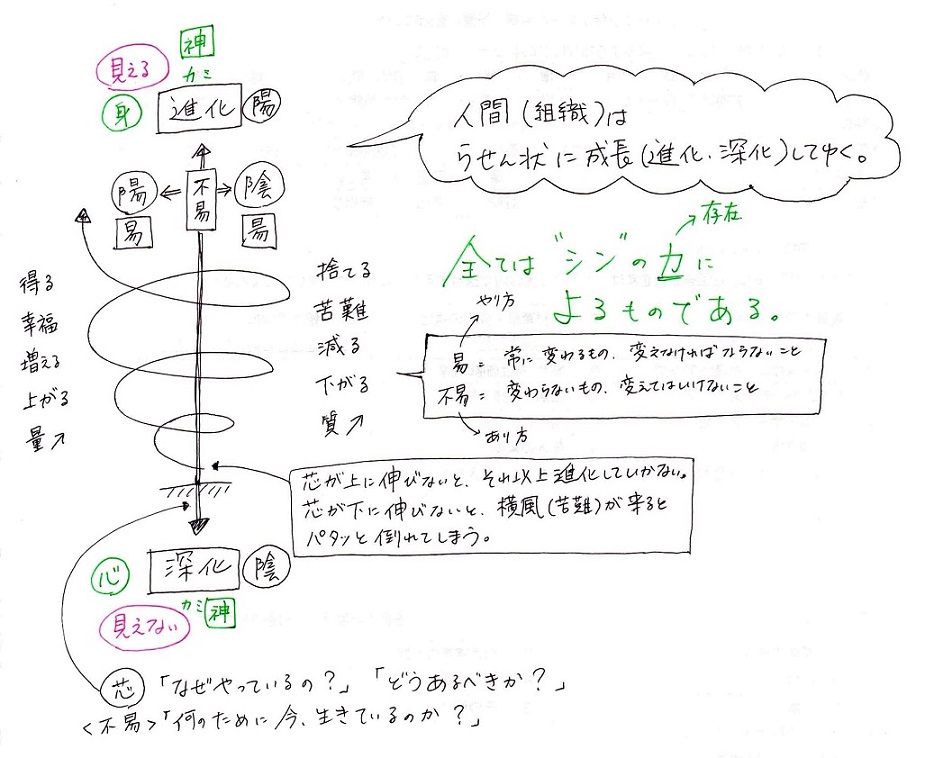 神
カミ
見える
身 進化 陽
人間(組織)は
らせん状に成長(進化、深化)してゆく。
陽 ⇐ 不易 ⇒ 陰
易 易
存在
全ては“シン”の力に
よるものである。
得る
幸福
増える
上がる
量↗
捨てる
苦難
減る
下がる
質↗
やり方
易 = 常に変わるもの、変えなければならないこと
不易 = 変わらないもの、変えてはいけないこと
あり方
芯が上に伸びないと、それ以上進化していかない。
芯が下に伸びないと、横風(苦難)が来ると
パタッと倒れてしまう。
心 深化 陰
カミ 神
見えない
芯 「なぜやっているの?」 「どうあるべきか?」
<不易>「何のために今、生きているのか?」